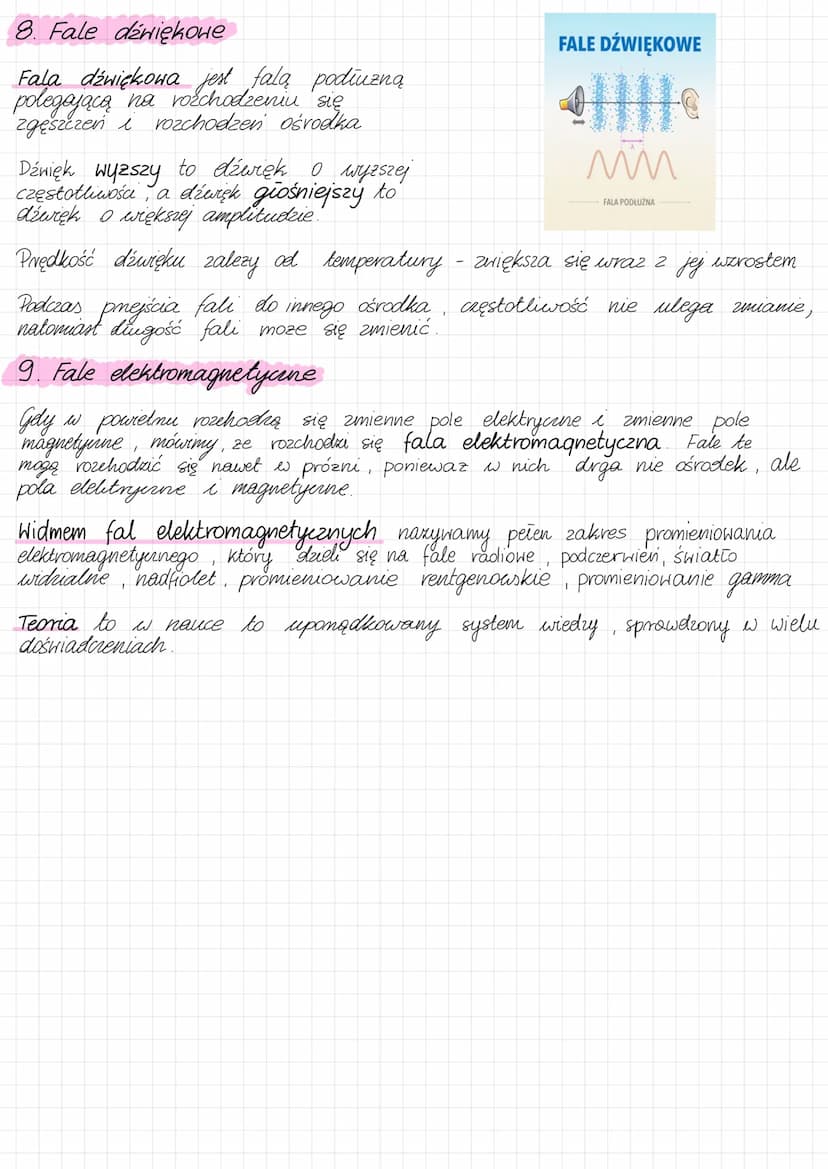 8. Fale dźwiękowe
FALE DŹWIĘKOWE
λ
FALA PODŁUŻNA
Fala dźwiękowa jest falą podłużną
polegającą na rozchodzeniu się
zgęszczeń i rozchodzeń ośrodka
Dźwięk wyższy to dźwięk o wyższej
częstotliwości, a dźwięk głośniejszy to
dźwięk o większej amplitudzie.
Prędkość dźwięku zależy od temperatury - zwiększa się wraz z jej wzrostem
Podczas przejścia fali do innego ośrodka, częstotliwość nie ulega zmianie,
natomiast długość fali może się zmienić.
9. Fale elektromagnetyczne
Gdy w powietrzu rozchodzą się zmienne pole elektryczne i zmienne pole
magnetyczne, mówimy, że rozchodzi się fala elektromagnetyczna. Fale te
mogą rozchodzić się nawet w próżni, ponieważ w nich drga nie ośrodek, ale
pola elektryczne i magnetyczne.
Widmem fal elektromagnetycznych nazywamy pełen zakres promieniowania
elektromagnetycznego, który dzieli się na fale radiowe, podczerwień, światło
widzialne, nadfiolet, promieniowanie rentgenowskie, promieniowanie gamma
Teoria to w nauce to uporządkowany system wiedzy, sprawdzony w wielu
doświadczeniach.